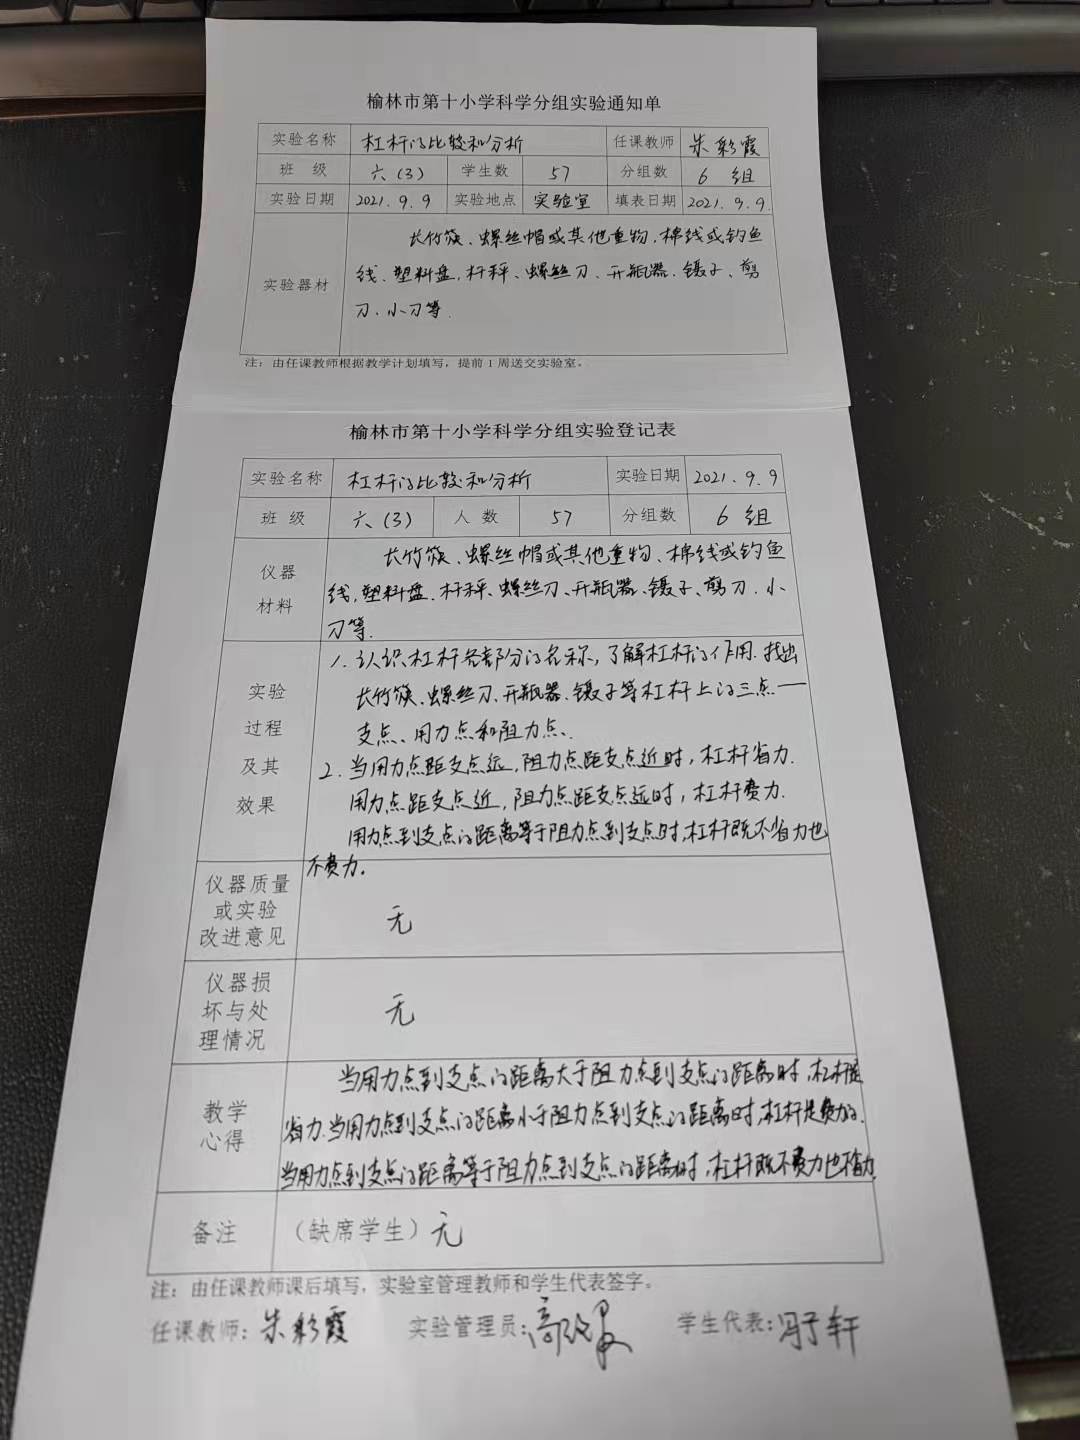 榆林市第十小学科学分组实验通知单
实验名称 杠杆的比较和分析 任课教师 朱彩霞
班 级 六(3) 学生数 57 分组数 6 组
实验日期 2021.9.9 实验地点 实验室 填表日期 2021.9.9.
长竹筷、螺丝帽或其他重物、棉线或钓鱼
实验器材 线、塑料盘、杆秤、螺丝刀、开瓶器、镊子、剪
刀、小刀等.
注：由任课教师根据教学计划填写，提前1周送交实验室。
榆林市第十小学科学分组实验登记表
实验名称 杠杆的比较和分析 实验日期 2021.9.9
班 级 六(3) 人 数 57 分组数 6 组
仪器
材料
长竹筷、螺丝帽或其他重物、棉线或钓鱼
线、塑料盘、杆秤、螺丝刀、开瓶器、镊子、剪刀、小
刀等.
实验
过程
及其
效果
1.认识杠杆各部分的名称，了解杠杆的作用.找出
长竹筷、螺丝刀、开瓶器、镊子等杠杆上的三点——
支点、用力点和阻力点.
2.当用力点距支点远，阻力点距支点近时，杠杆省力.
用力点距支点近，阻力点距支点远时，杠杆费力.
用力点到支点的距离等于阻力点到支点时,杠杆既不省力也
不费力.
仪器质量
或实验
改进意见
无
仪器损
坏与处
理情况
无
教学
心得
当用力点到支点的距离大于阻力点到支点的距离时，杠杆
省力.当用力点到支点的距离小于阻力点到支点的距离时，杠杆是费力的.
当用力点到支点的距离等于阻力点到支点的距离时，杠杆既不费力也不省力.
备注 （缺席学生）无
注：由任课教师课后填写，实验室管理教师和学生代表签字。
任课教师：朱彩霞 实验管理员： 学生代表：冯子轩